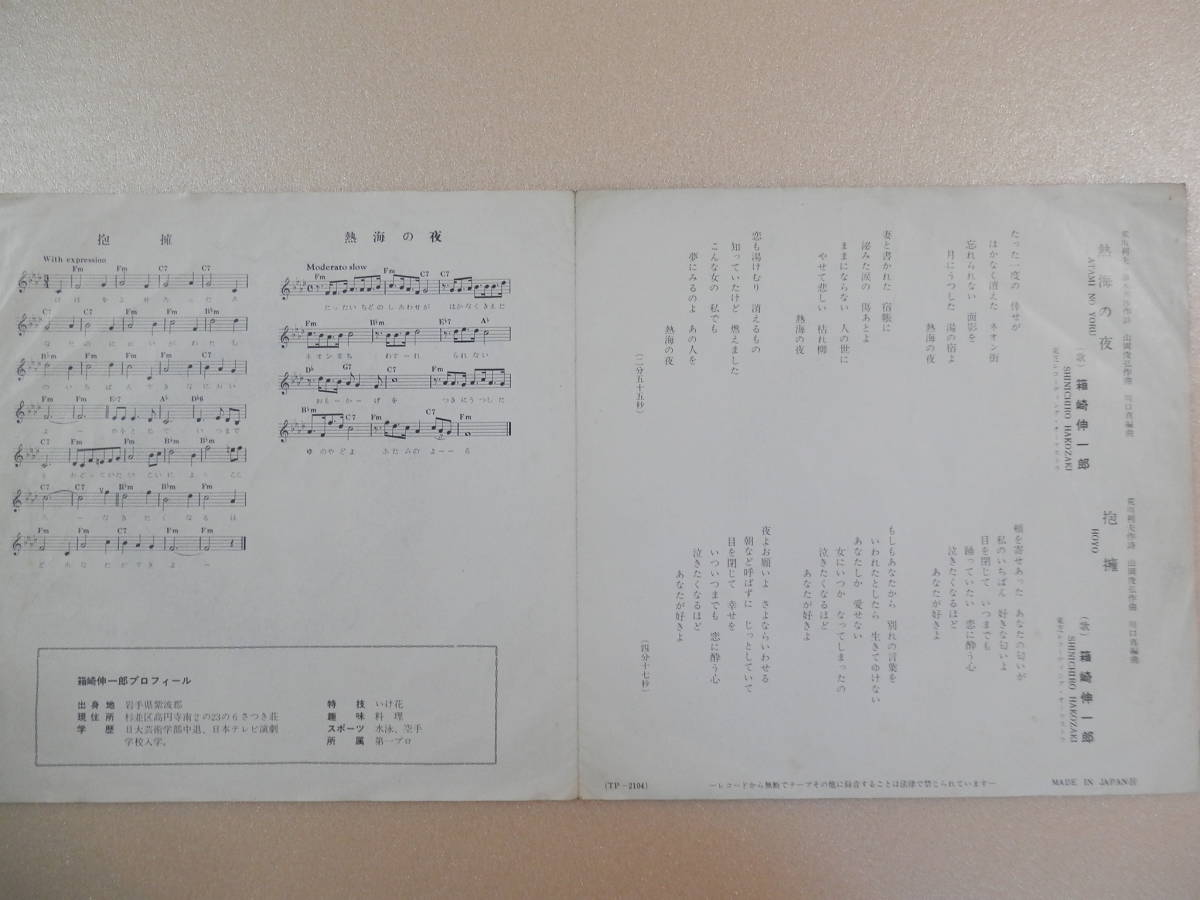 抱擁
With expression
熱海の夜
Moderato slow
たったいちどの しあわせが はかなくきえた
ネオンまち わすーれ られない
おもーかーげを つきにうつした
ゆのやどよ あたみの よーーる
箱崎伸一郎プロフィール
出身地 岩手県紫波郡
現住所 杉並区高円寺南2の23の6さつき荘
学歴 日大芸術学部中退、日本テレビ演劇
学校入学。
特技 いけ花
趣味 料理
スポーツ 水泳、空手
所属 第一プロ
熱海の夜
ATAMI NO YORU
(歌) 箱崎伸一郎
SHINICHIRO HAKOZAKI
たった一度の 倖せが
はかなく消えた ネオン街
忘れられない 面影を
月にうつした 湯の宿よ
熱海の夜
妻と書かれた 宿帳に
泌みた涙の 傷あとよ
ままにならない 人の世に
やせて悲しい 枯れ柳
熱海の夜
恋も湯けむり 消えるもの
知っていたけど 燃えました
こんな女の 私でも
夢にみるのよ あの人を
熱海の夜
(二分五十五秒)
抱擁
HOYO
(歌) 箱崎伸一郎
SHINICHIRO HAKOZAKI
頬を寄せあった あなたの匂いが
私のいちばん 好きな匂いよ
目を閉じて いつまでも
踊っていたい 恋に酔う心
泣きたくなるほど
あなたが好きよ
もしもあなたから 別れの言葉を
いわれたとしたら 生きてゆけない
あなたしか 愛せない
女にいつか なってしまったの
泣きたくなるほど
あなたが好きよ
夜よお願いよ さよならいわせる
朝など呼ばずに じっとしていて
目を閉じて 幸せを
いついつまでも 恋に酔う心
泣きたくなるほど
あなたが好きよ
(四分十七秒)
(TP-2104)
ーレコードから無断でテープその他に録音することは法律で禁じられていますー
MADE IN JAPAN